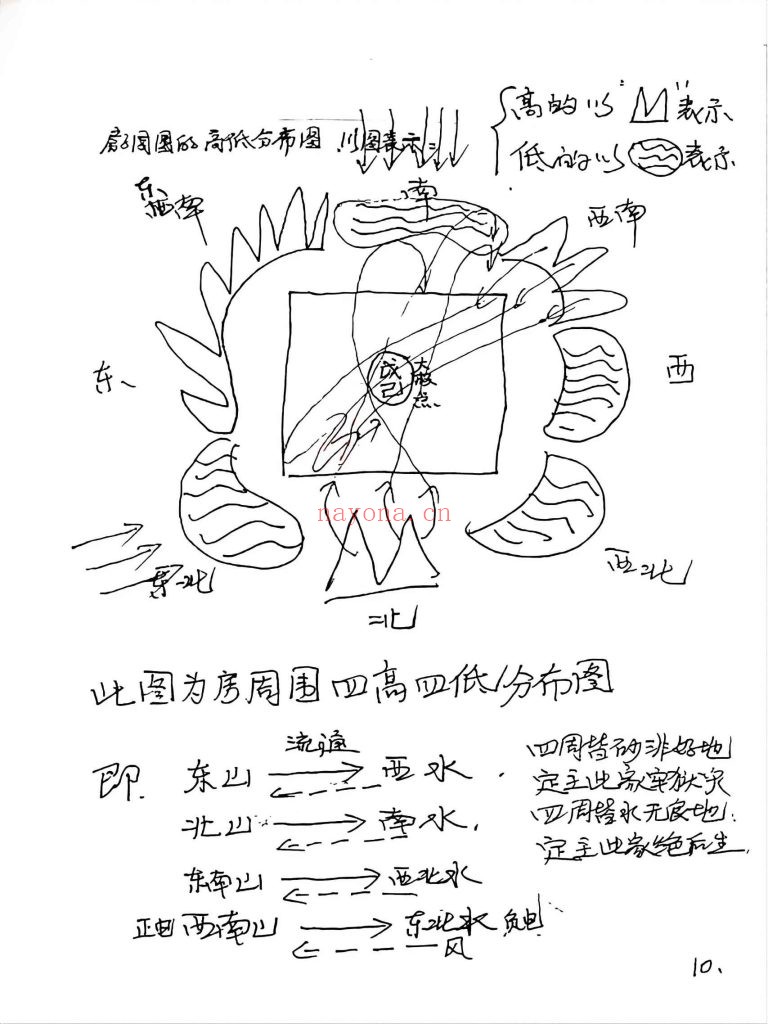 高的以"M"表示
房周围的高低分布图 以图表示:
低的以 表示
南
东南
西南
东、
西
戊己
大极点
nayona.cn
东北
西北
北
此图为房周围四高四低分布图
即 东山 流通 西水
北山 南水
东南山 西北水
正电 西南山 东北水 负电
风
四周皆砂非好地
定主此家牢狱灾
四周皆水无良地
定主此家绝后生
10.